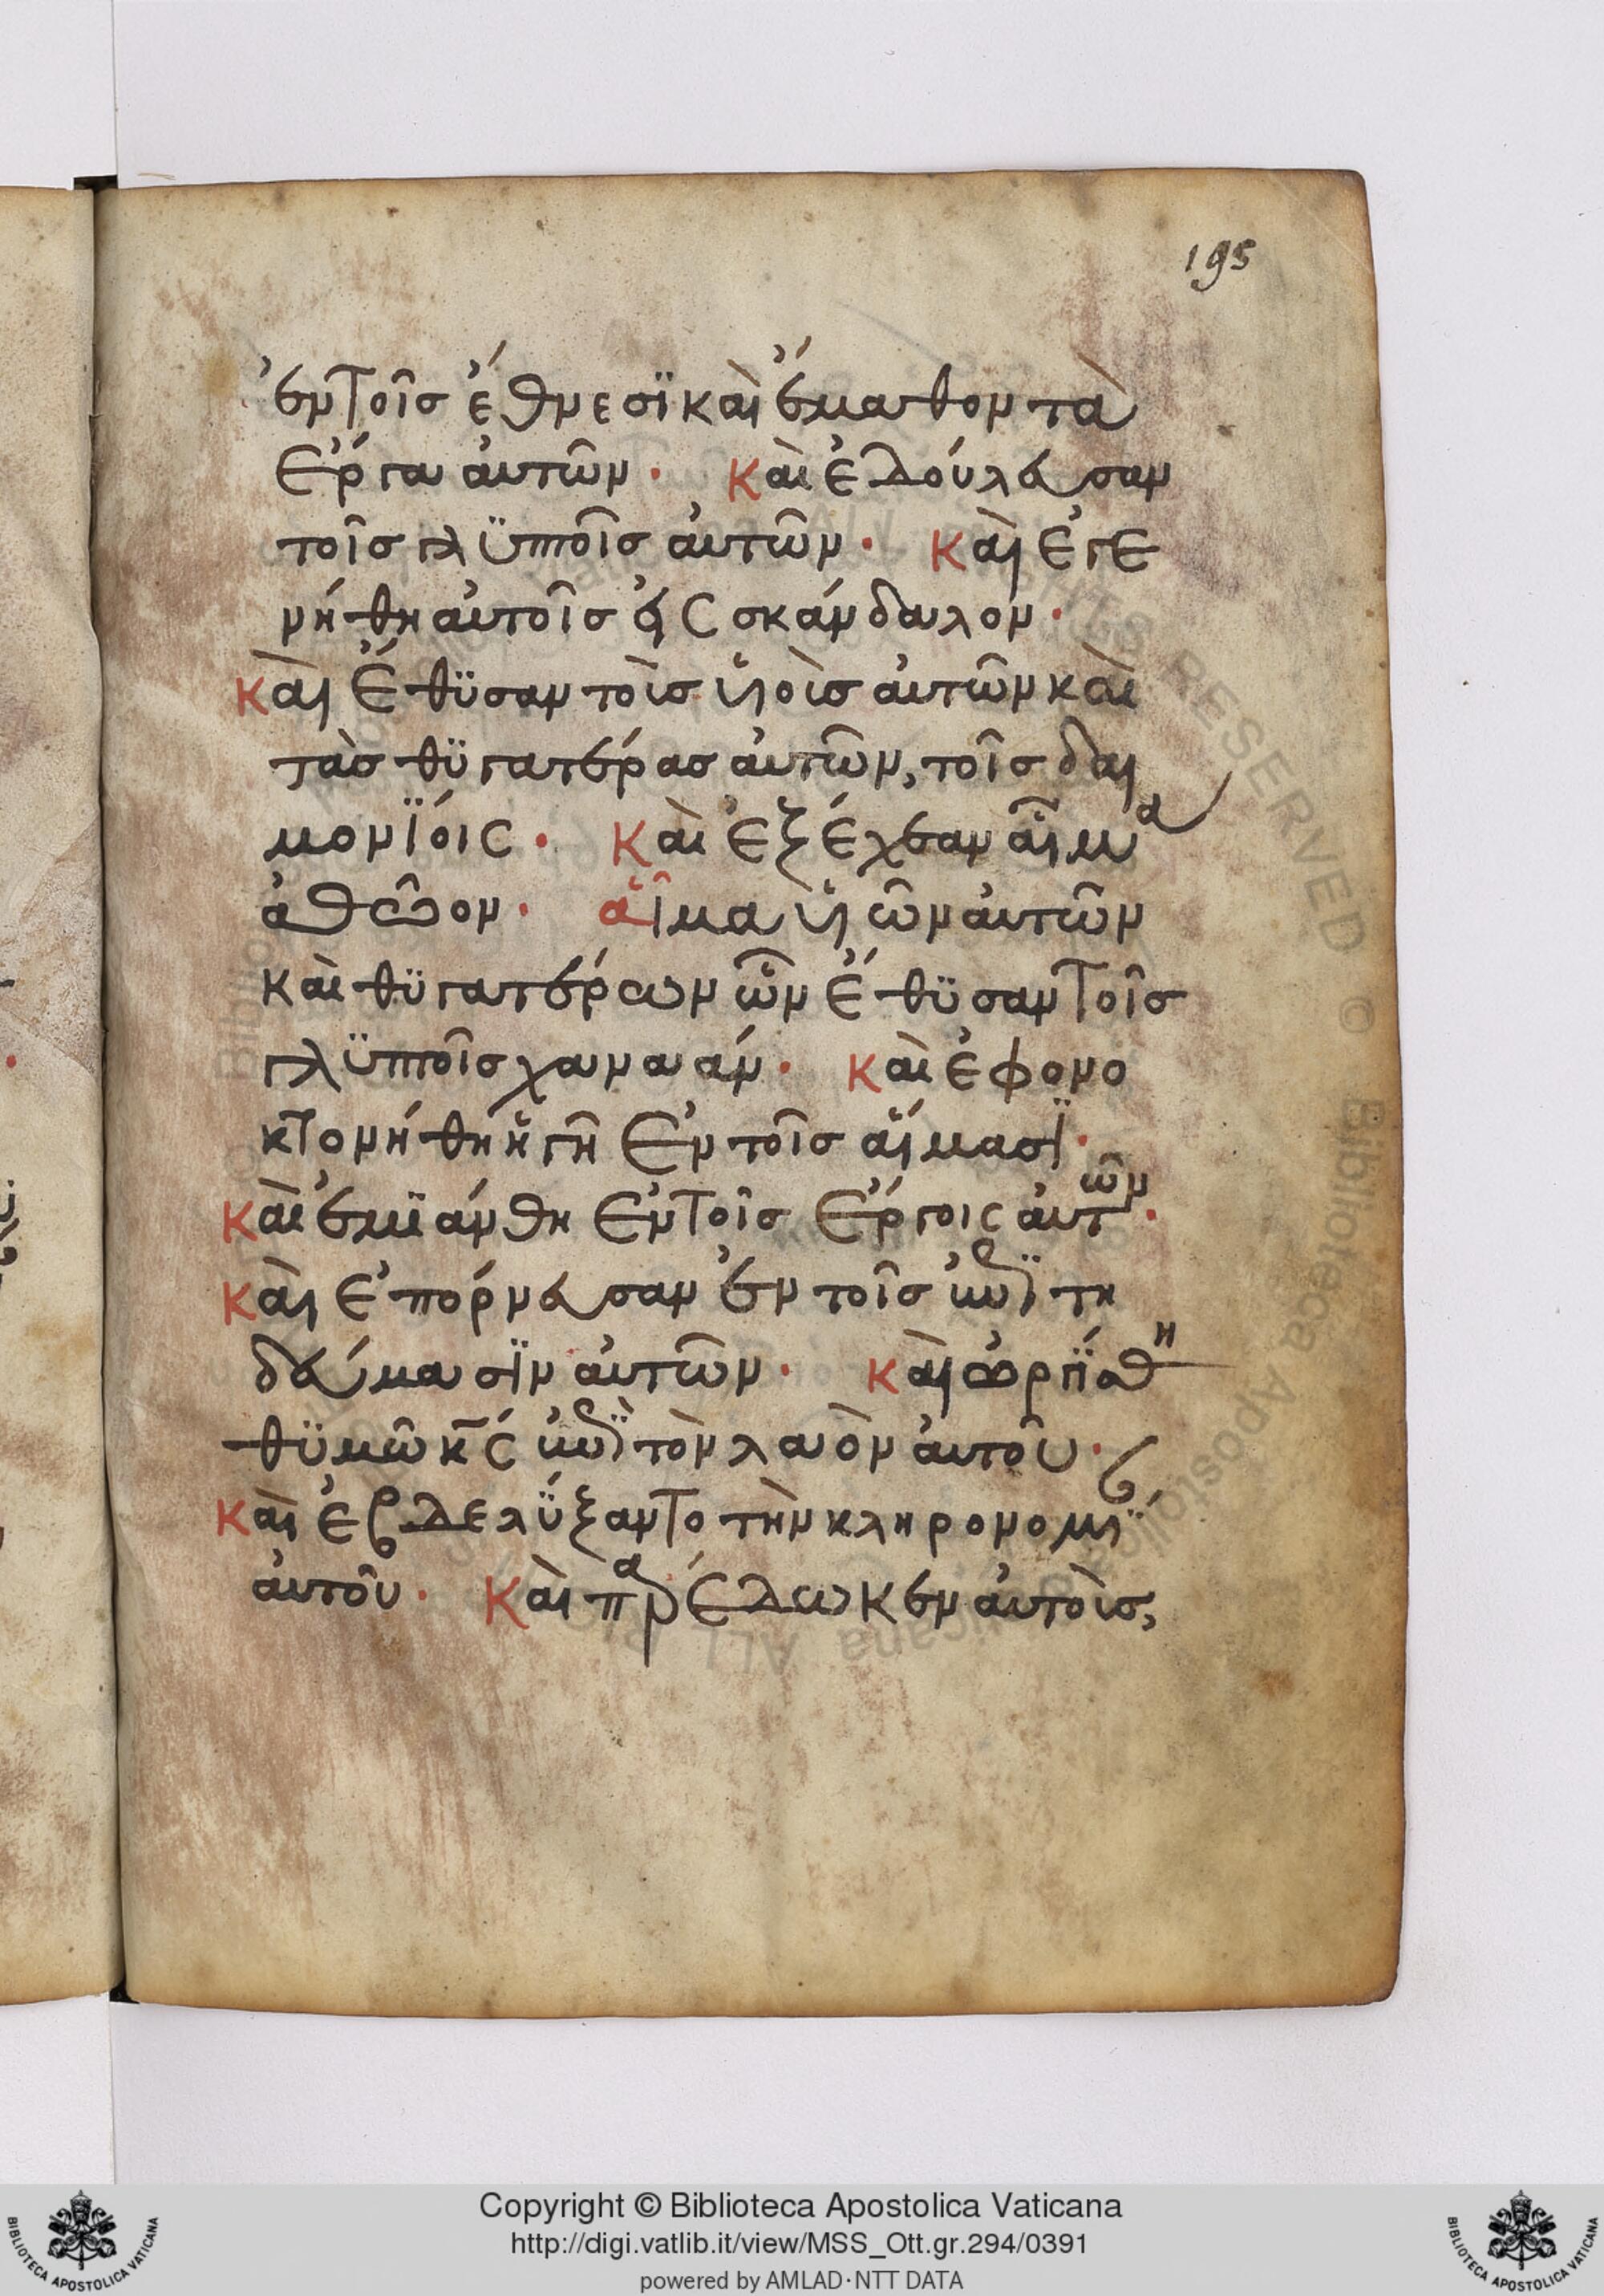 195
ἐν τοῖσ ἔθνεσϊ καὶ ἔμαθον τὰ
ἔργα ἀυτῶν· Καὶ ἐδούλευσαν
τοῖσ γλϋπτοῖσ ἀυτῶν· Καὶ ἐγε
νήθη ἀυτοῖσ εἰς σκάνδαλον·
Καὶ ἔθϋσαν τοὶσ ὑιοὶσ ἀυτῶν καὶ
τὰσ θϋγατέρασ ἀυτῶν, τοῖσ δαι
μονΐοις· Καὶ ἐξέχεαν αἷμα
ἀθῶον· αἷμα ὑιῶν ἀυτῶν
καὶ θϋγατέρων ὧν ἔθϋσαν τοῖσ
γλϋπτοῖσ χανααν· Καὶ ἐφονο
κτονήθη ἡ γῆ ἐν τοῖσ αἵμασϊ·
Καὶ ἐμϊάνθη ἐν τοῖσ ἔργοις ἀυτῶν·
Καὶ ἐπόρνευσαν ἐν τοῖσ ἐπϊτη
δεύμασϊν ἀυτῶν· Καὶ ὠργΐσθη
θϋμῶ κς ἐπϊ τὸν λαὸν ἀυτοῦ·
Καὶ ἐβδελΰξαντο τὴν κληρονομϊ
ἀυτοῦ· Καὶ παρέδωκεν ἀυτοὶσ,
Copyright © Biblioteca Apostolica Vaticana
http://digi.vatlib.it/view/MSS_Ott.gr.294/0391
powered by AMLAD·NTT DATA
BIBLIOTECA APOSTOLICA VATICANA
BIBLIOTECA APOSTOLICA VATICANA